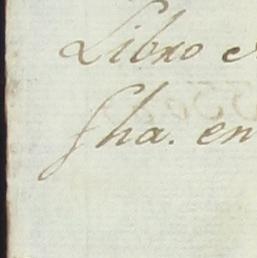 Libro
fha. en